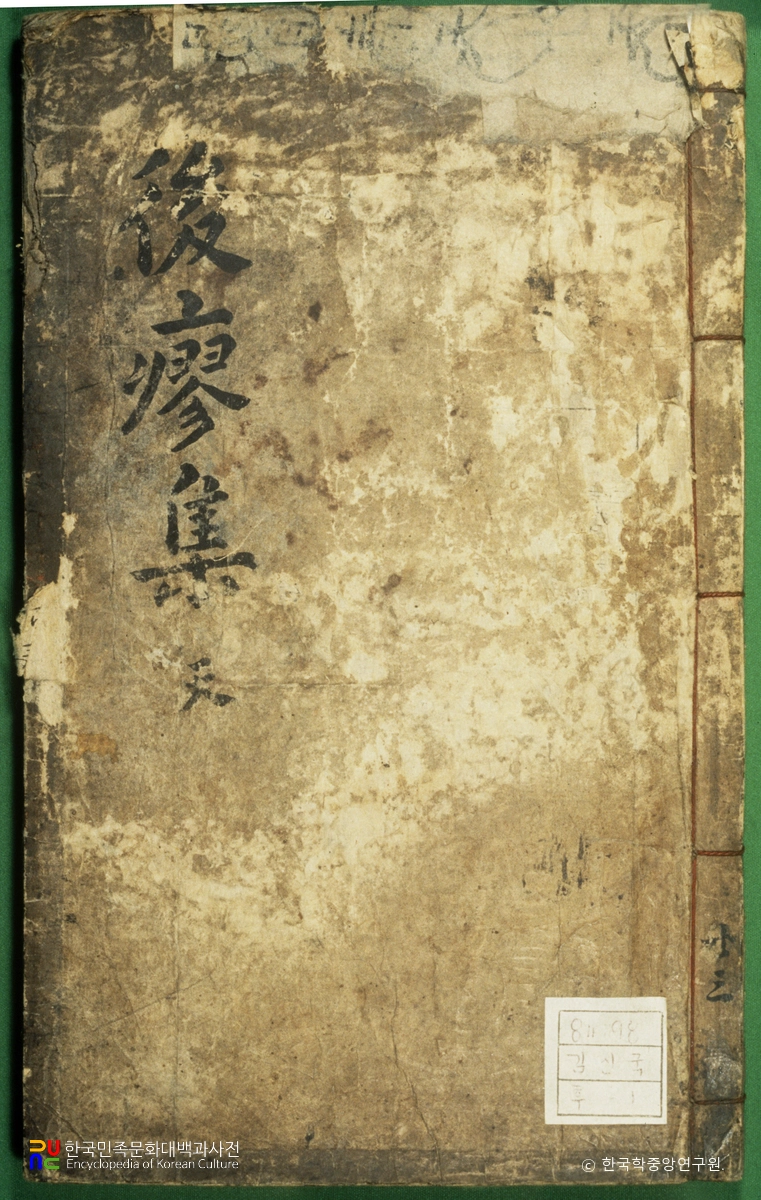 後瘳集 天
811.98
김신국
후 1
한국민족문화대백과사전
Encyclopedia of Korean Culture
© 한국학중앙연구원